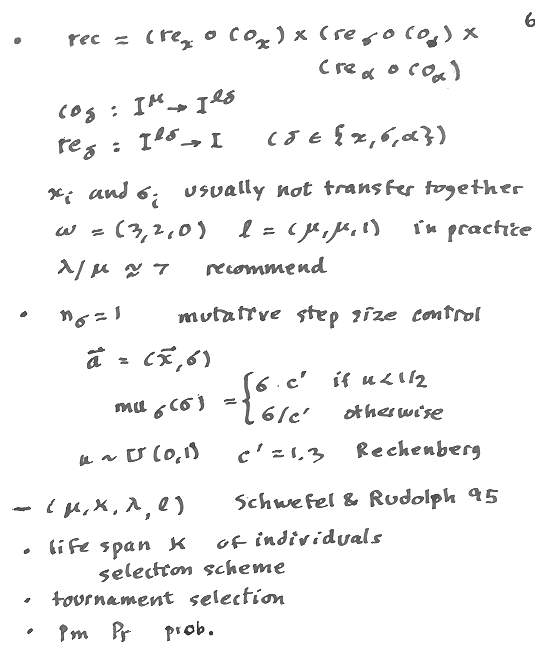 6
• rec = (re_x o co_x) x (re_σ o co_σ) x
(re_α o co_α)
co_δ : I^μ → I^lδ
re_δ : I^lδ → I (δ ∈ {x, σ, α})
x_i and σ_i usually not transfer together
ω = (3, 2, 0) l = (μ, μ, 1) in practice
λ/μ ≈ 7 recommend
• n_σ = 1 mutative step size control
a⃗ = (x⃗, σ)
mu_σ(σ) = { σ · c' if u < 1/2
σ/c' otherwise
u ~ U(0,1) c' = 1.3 Rechenberg
– (μ, κ, λ, ρ) Schwefel & Rudolph 95
• life span κ of individuals
selection scheme
• tournament selection
• Pm Pr prob.